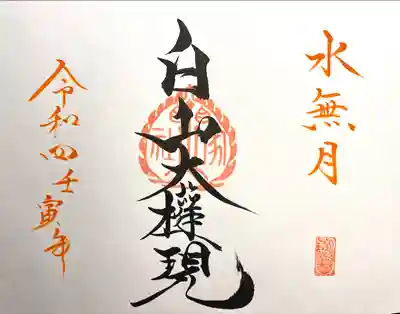 水無月
白山大権現
令和四壬寅年